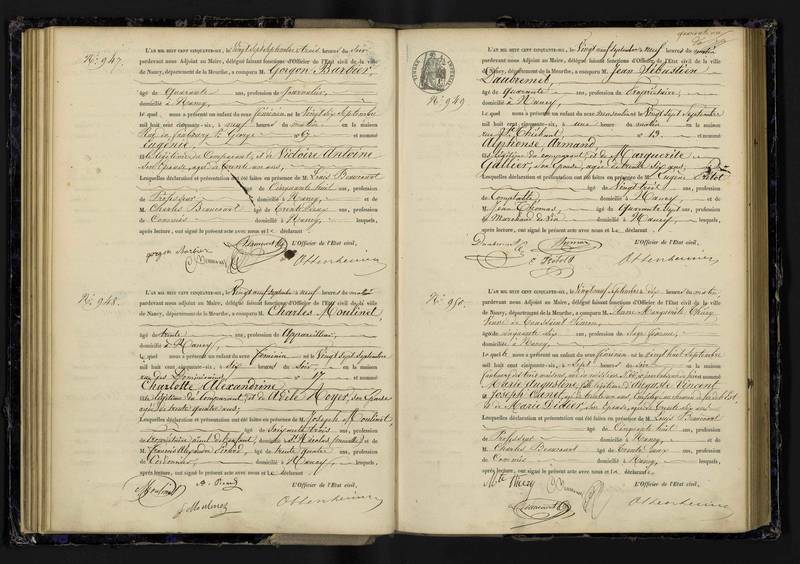 N.º 947.
L'AN MIL HUIT CENT CINQUANTE-SIX, le Vingt Sept Septembre à trois heures du Soir
pardevant nous Adjoint au Maire, délégué faisant fonctions d'Officier de l'État civil de la ville
de Nancy, département de la Meurthe, a comparu M. Gorgon Barbier,
âgé de Quarante ans, profession de Journalier,
domicilié à Nancy,
Lequel nous a présenté un enfant du sexe féminin né le Vingt Six Septembre
mil huit cent cinquante-six, à neuf heures du matin en la maison
Rue du faubourg St. George nº 67 et nommé
Eugénie,
Victoire Antoine
son Épouse, âgée de trente ans,
Lesquelles déclaration et présentation ont été faites en présence de M. Louis Beaucourt
âgé de Cinquante huit ans, profession
de Professeur domicilié à Nancy, et de
M. Charles Beaucourt âgé de Trente deux ans, profession
de Commis domicilié à Nancy, lesquels,
après lecture, ont signé le présent acte avec nous et le déclarant
L'Officier de l'État civil,
gorgon Barbier
Beaucourt
Ottenheimer
N.º 948.
L'AN MIL HUIT CENT CINQUANTE-SIX, le Vingt neuf Septembre à neuf heures du matin
pardevant nous Adjoint au Maire, délégué faisant fonctions d'Officier de l'État civil de la ville
de Nancy, département de la Meurthe, a comparu M. Charles Moulinet
âgé de trente ans, profession de Appareilleur
domicilié à Nancy,
Lequel nous a présenté un enfant du sexe féminin né le Vingt Sept Septembre
mil huit cent cinquante-six, à Six heures du Soir en la maison
rue des Dominicains nº et nommé
Charlotte Alexandrine
fille légitime du Comparant, et de Adèle Noyer, son Épouse
âgée de trente quatre ans,
Lesquelles déclaration et présentation ont été faites en présence de M. Joseph Moulinet,
âgé de Soixante trois ans, profession
de Propriétaire domicilié à St. Nicolas et de
M. François Alexandre âgé de trente quatre ans, profession
de Cordonnier, domicilié à Nancy, lesquels,
après lecture, ont signé le présent acte avec nous et le déclarant
L'Officier de l'État civil,
Moulinet
J Moulinet
Ottenheimer
N.º 949
L'AN MIL HUIT CENT CINQUANTE-SIX, le Vingt neuf Septembre à neuf heures du matin
pardevant nous Adjoint au Maire, délégué faisant fonctions d'Officier de l'État civil de la ville
de Nancy, département de la Meurthe, a comparu M. Jean Sébastien
Daubremet
âgé de Quarante ans, profession de Propriétaire,
domicilié à Nancy,
Lequel nous a présenté un enfant du sexe masculin né le Vingt Sept Septembre
mil huit cent cinquante-six, à une heure du matin en la maison
rue St. Thiébaut, nº 13. et nommé
Alphonse Armand
fils légitime du comparant, et de Marguerite
Gallier, son Épouse, âgée de trente Six ans,
Lesquelles déclaration et présentation ont été faites en présence de M. Eugène
âgé de Vingt huit ans, profession
de Comptable domicilié à Nancy, et de
M. Jean Thomas, âgé de Quarante Sept ans, profession
de Marchand de Vin, domicilié à Nancy, lesquels,
après lecture, ont signé le présent acte avec nous et le déclarant.
L'Officier de l'État civil,
Daubremet
Thomas
Ottenheimer
N.º 950.
L'AN MIL HUIT CENT CINQUANTE-SIX, le Vingt neuf Septembre à dix heures du matin
pardevant nous Adjoint au Maire, délégué faisant fonctions d'Officier de l'État civil de la ville
de Nancy, département de la Meurthe, a comparu M. Marguerite Thiéry
Veuve de Toussaint Simon,
âgée de Cinquante ans, profession de Sage femme,
domiciliée à Nancy,
Laquelle nous a présenté un enfant du sexe féminin né le Vingt huit Septembre
mil huit cent cinquante-six, à Sept heures du Soir en la maison
et nommé
Marie Augustine, fille légitime d'Auguste Vincent
Joseph Canel,
et de Marie Didier, son Épouse, âgée de trente six ans
Lesquelles déclaration et présentation ont été faites en présence de M. Louis Beaucourt
âgé de Cinquante huit ans, profession
de Professeur domicilié à Nancy, et de
M. Charles Beaucourt âgé de Trente deux ans, profession
de Commis domicilié à Nancy, lesquels,
après lecture, ont signé le présent acte avec nous et la déclarante
L'Officier de l'État civil,
Mte Thiéry
Beaucourt
Ottenheimer